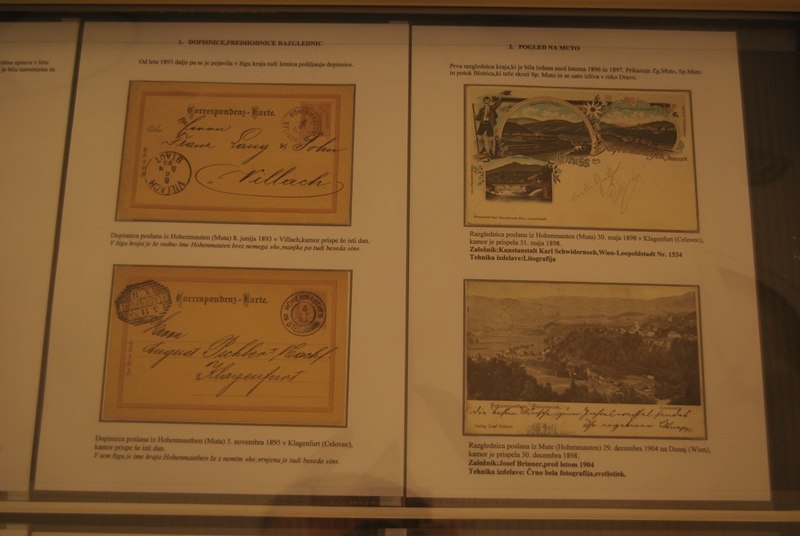 je bila namenjena za
1. DOPISNICE,PREDHODNICE RAZGLEDNIC
Od leta 1893 dalje pa se je pojavila v žigu kraja tudi letnica pošiljanja dopisnice.
Correspondenz-Karte.
Herrn
Franz Lang & Sohn
Villach
VILLACH
STADT
Dopisnica poslana iz Hohenmauten (Muta) 8. junija 1893 v Villach,kamor prispe še isti dan.
V žigu kraja je še vedno ime Hohenmauten brez nemega »h«,manjka pa tudi beseda
Correspondenz-Karte.
Herrn
August Pichler
Klagenfurt
Dopisnica poslana iz Hohenmauthen (Muta) 5. novembra 1895 v Klagenfurt (Celovec),
kamor prispe še isti dan.
V tem žigu je ime kraja Hohenmauthen že z nemim »h«,vrnjena je tudi beseda
2. POGLED NA MUTO
Prva razglednica kraja,ki je bila izdana med letoma 1896 in 1897. Prikazuje Zg.Muto, Sp.Muto
in potok Bistrica,ki teče skozi Sp. Muto in se nato izliva v reko Dravo.
Gruss
Razglednica poslana iz Hohenmauten (Muta) 30. maja 1898 v Klagenfurt (Celovec),
kamor je prispela 31. maja 1898.
Založnik:Kunstanstalt Karl Schwidernoch,Wien-Leopoldstadt Nr. 1534
Tehnika izdelave:Litografija
Razglednica poslana iz Mute (Hohenmauten) 29. decembra 1904 na Dunaj (Wien),
kamor je prispela 30. decembra 1898.
Založnik:Josef Brinner,pred letom 1904
Tehnika izdelave: Črno bela fotografija,svetlotisk.